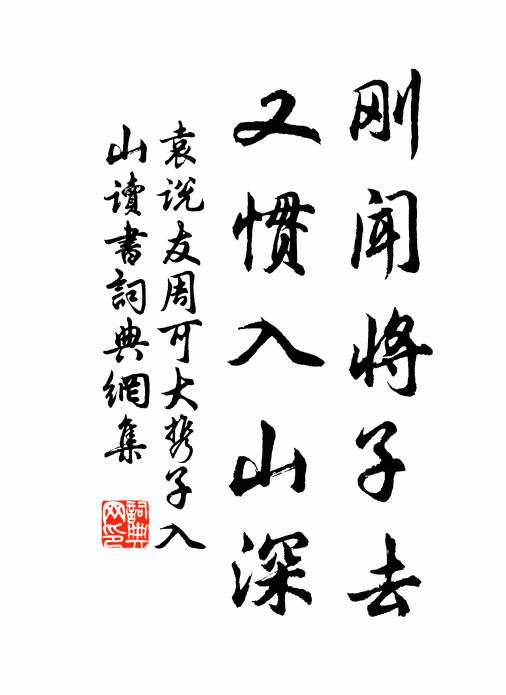 刚闻将子去
又惯入山深
袁说友周可大携子入
山读书词典網集
詞典網印